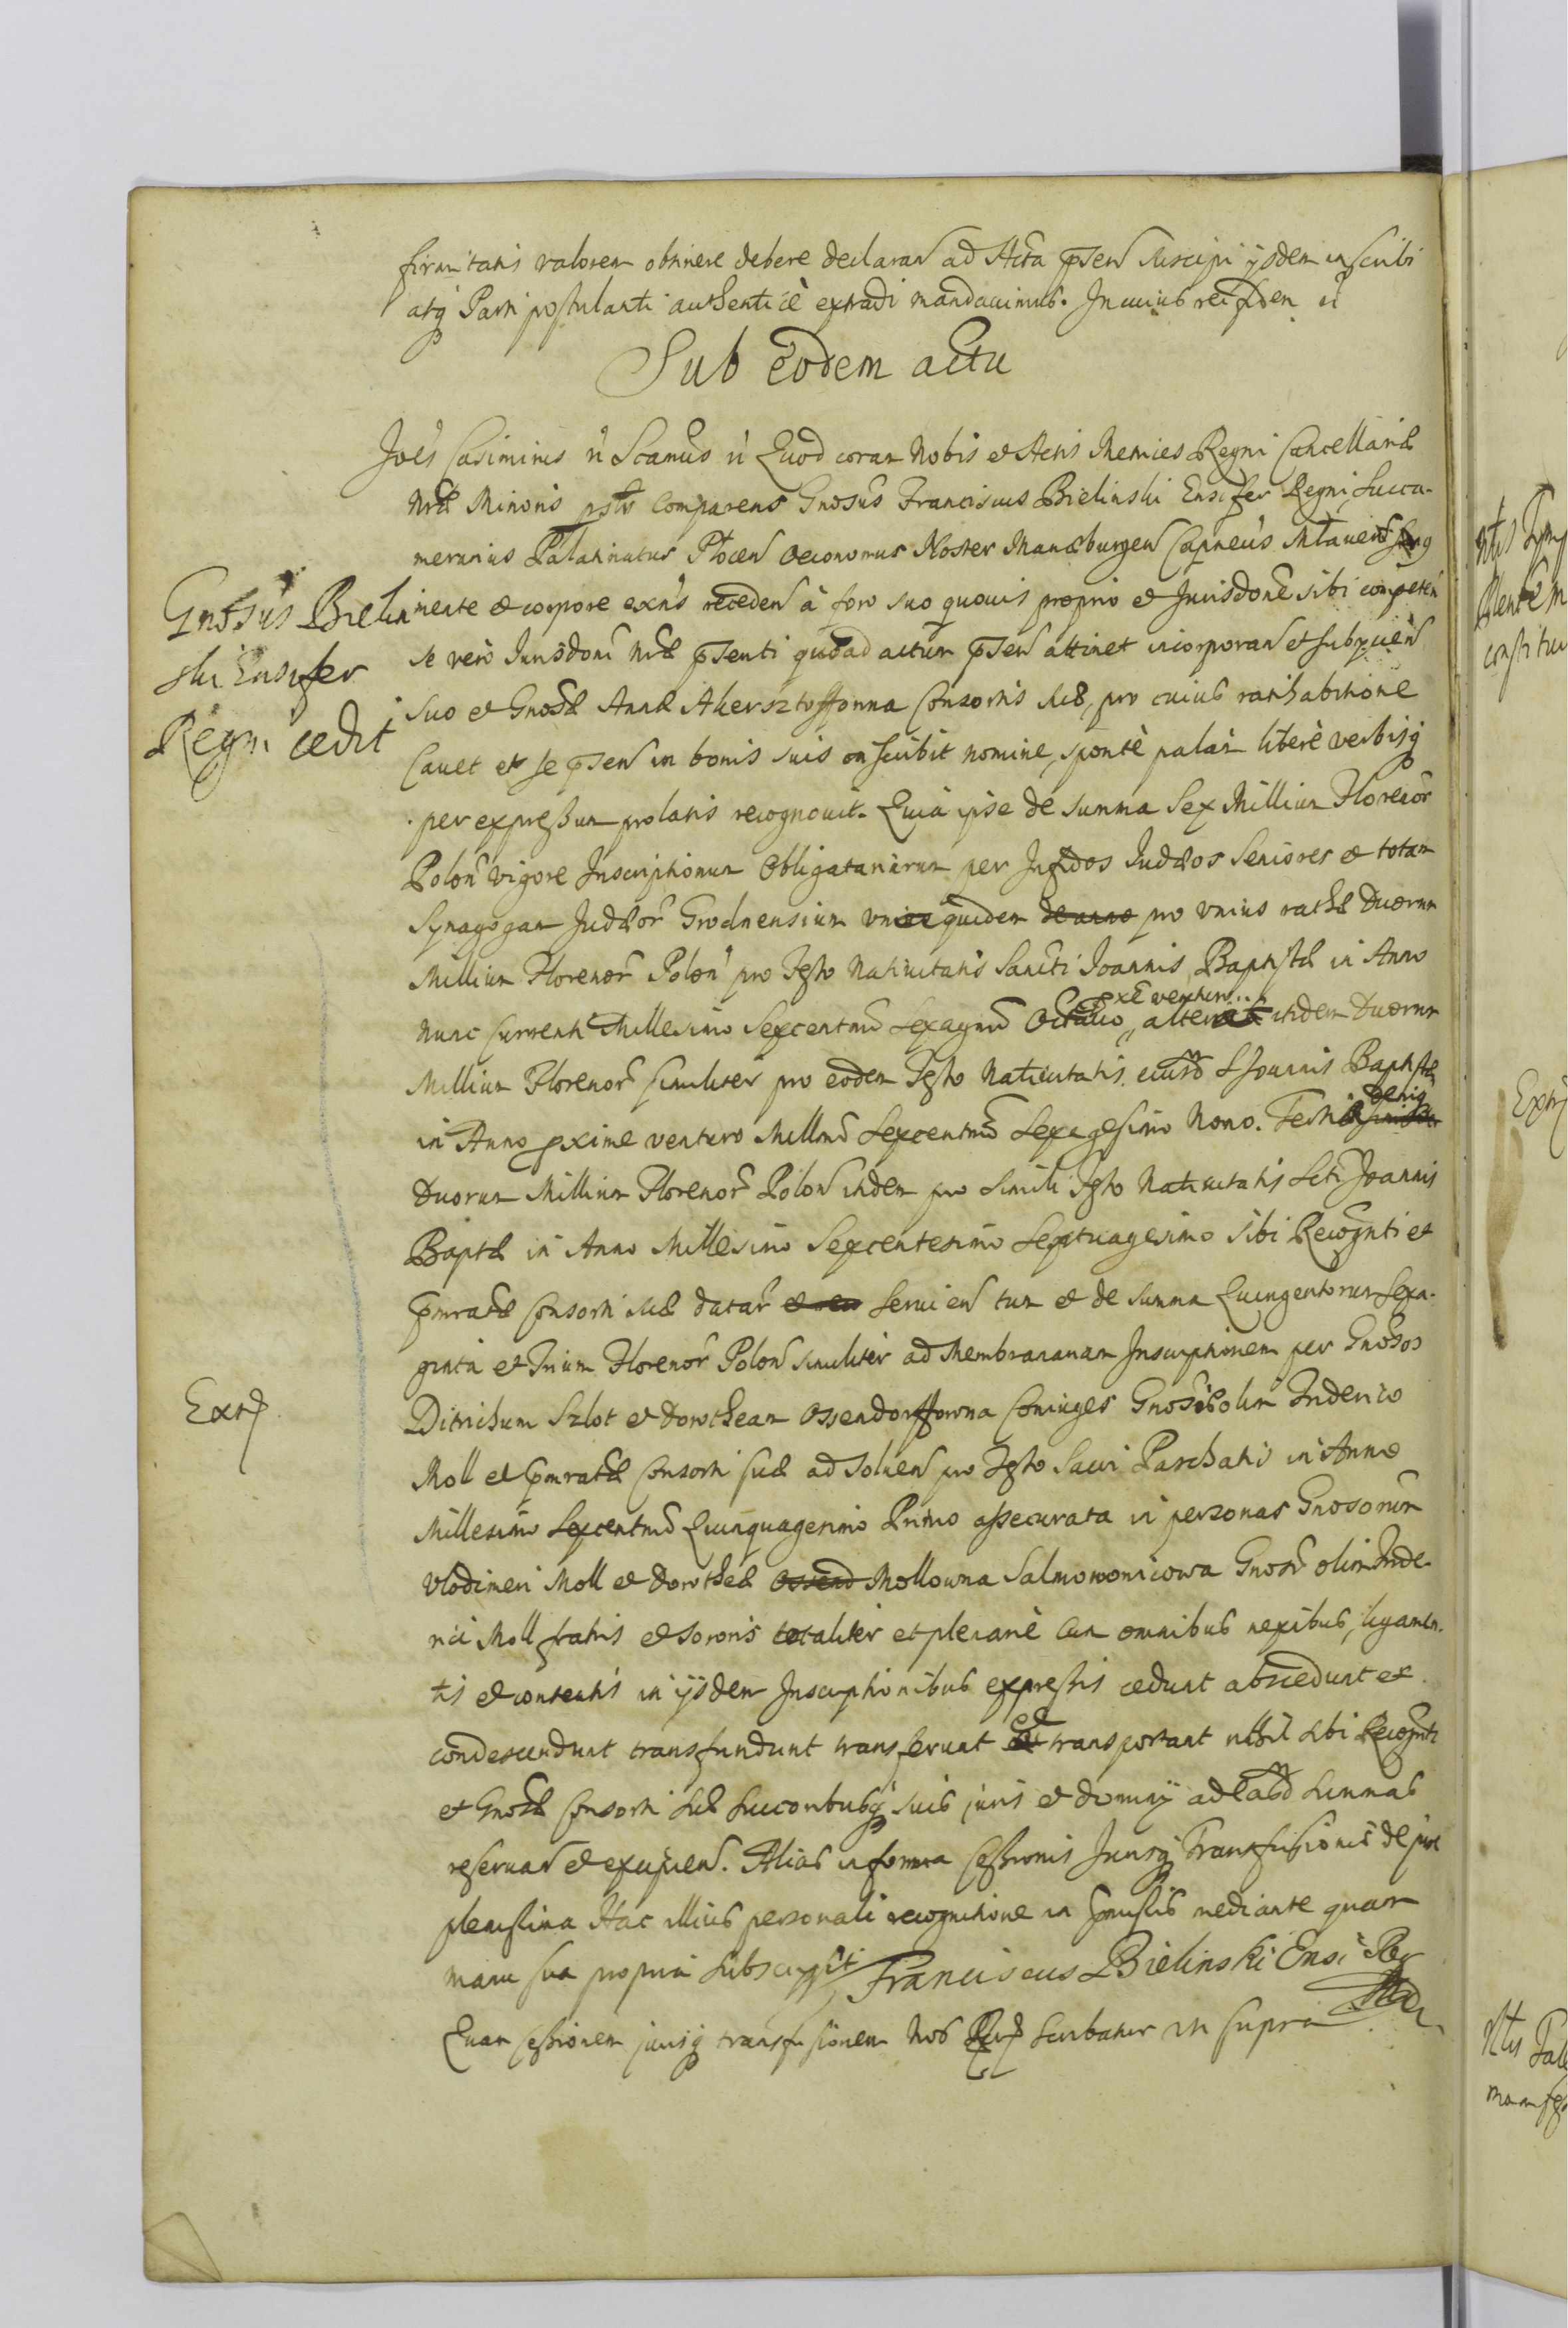 firmitatis valorem obtinere debere declaran ad Acta pnsen suscipi ijsdem inscribi
atq Parti postulanti authenticè extradi mandauimus. In cuius rei fidem ũ
Sub eodem actu
Joes Casimirus ũ Scamus ũ Quod coram Nobis et Actis Metrices Regni Cancellariæ
Nræ Minoris psls Comparens Gnosus Franciscus Bielinski Ensifer Regni Succa-
merarius Palatinatus Plocen Oeconomus Noster Mariæburgen Capneus Mlauen
Gnosus Bielin
ski Ensifer
Regni cedit
mente et corpore exns receden à foro suo quouis proprio et Jurisdone sibi competen
se verò Jurisdoni Nræ pnsenti quoad actum pnsen attinet incorporan et subijcien
suo et Gnosæ Annæ Akersztoffowna Consortis suæ, pro cuius ratihabitione
Cauet et se pnsen in bonis suis onscribit nomine, sponte palàm liberè verbisq
per expressum prolatis recognouit. Quia ipse de summa Sex Millium Florenor
Polon vigore Inscriptionum Obligatariarum per Infidos Judæos Seniores et totam
Synagogam Judæor Grodnensium quidem de anno pro vnius rathæ Duorum
Millium Florenor Polon pro Festo Natiuitatis Sancti Joannis Baptistæ in Anno
nunc currenti Millesimo Sexcentmo Sexagmo Octauo, pxe venturo alterius itidem Duorum
Millium Florenor similiter pro eodem Festo Natiuitatis eiusd S Joannis Baptistæ
in Anno pxime venturo Millmo Sexcentmo Sexagesimo Nono. Tertiæ deniq
Duorum Millium Florenor Polon itidem pro simili Festo Natiuitatis Scti Joannis
Baptæ in Anno Millesimo Sexcentesimo Septuagesimo sibi Recognti et
pmratæ Consorti suæ datar seruien tum et de summa Quingentorum Sexa-
ginta et Trium Florenor Polon similiter ad Membranam Inscriptionem per Gnosos
Extr
Ditrichum Szlot et Dorotheam Ossendorffowna Coniuges Gnosis olim Friderico
Moll et pmratæ Consorti suæ ad soluen pro Festo Sacri Paschatis in Anno
Millesimo Sexcentmo Quinquagesimo Primo assecurata in personas Gnosorum
Vlodimeri Moll et Dorotheæ Ossend Mollowna Salmonowicowa Gnosi olim Fride-
rici Moll fratris et sororis totaliter et plenariè cum omnibus nexibus, ligamen-
tis et contentis in ijsdem Inscriptionibus expressis cedunt abscedunt et
condescendunt transfundunt transferunt et transportant nihil sibi Recognti
et Gnosæ Consorti suæ Succoribusq suis juris et dominij ad easd summas
reseruan et excipien. Alias in forma Cessionis Jurisq Transfusionis de jure
plenissima Hac illius personali recognitione in pmissis mediante quam
manu sua propria subscripsit Franciscus Bielinski Ensi Reg
Quam cessionem jurisq transfusionem Nos scribatur ut supra